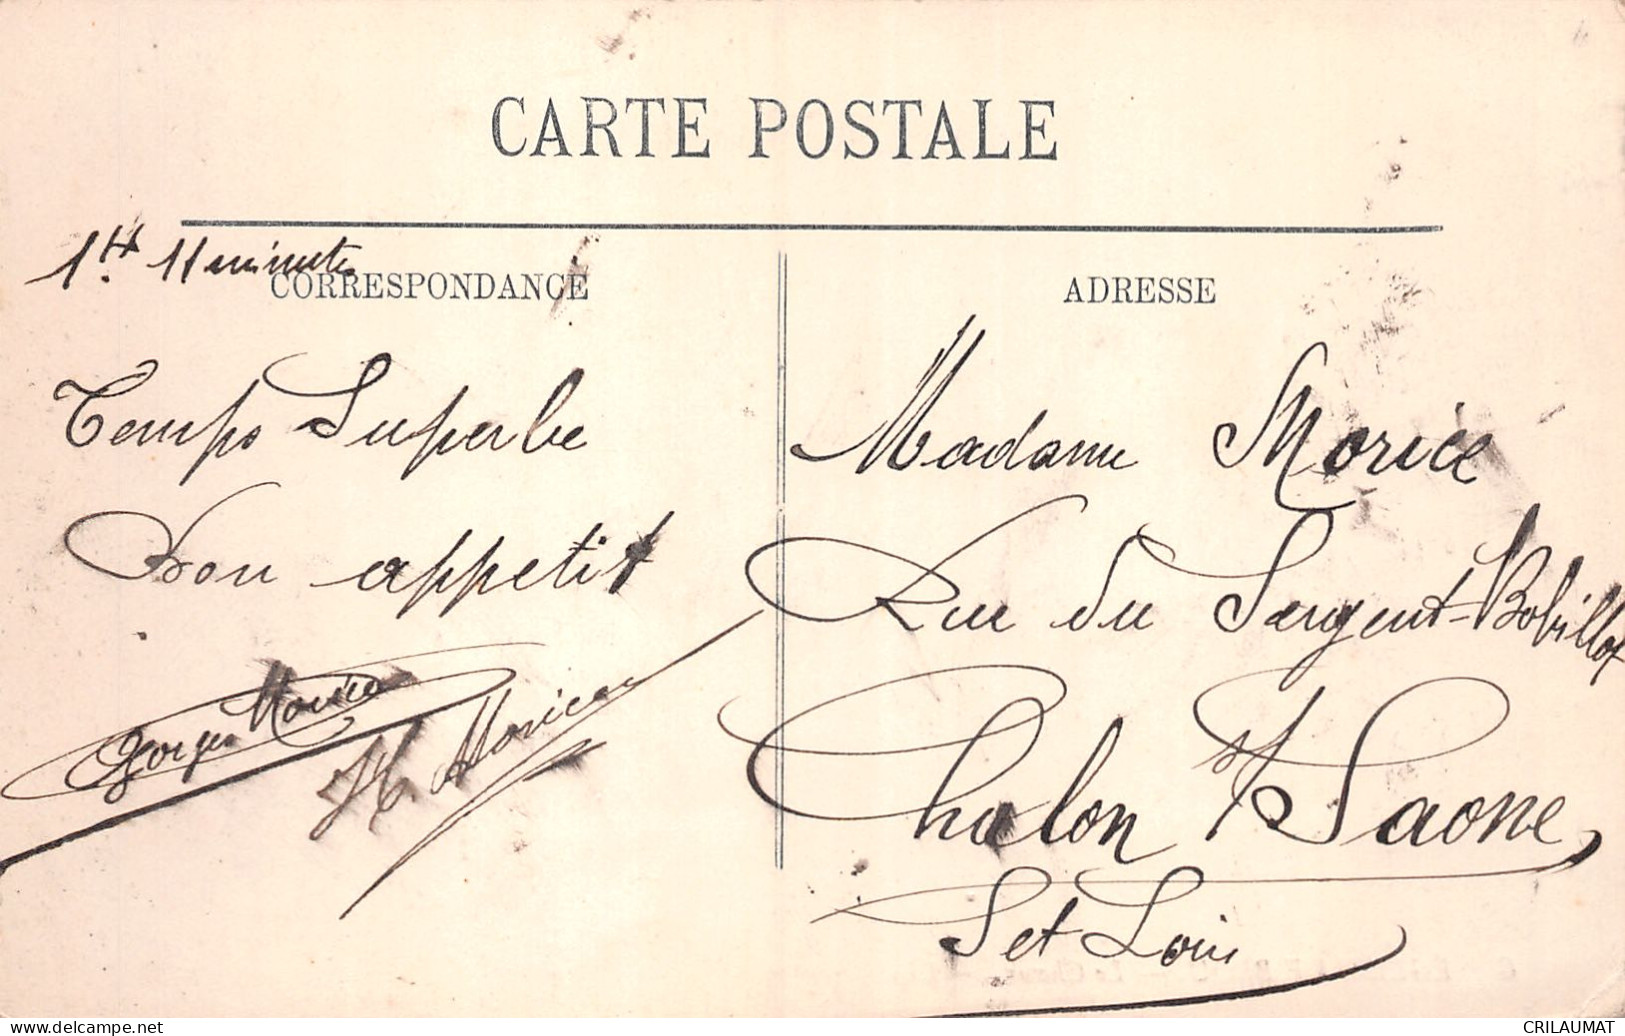 CARTE POSTALE
1H. 11 minutes
CORRESPONDANCE
Temps Superbe
Bon appetit
Georges Morice
H. Morice
ADRESSE
Madame Morice
Rue du Sergent-Bobillot
Chalon s/ Saone
S et Loire
CRILAUMAT